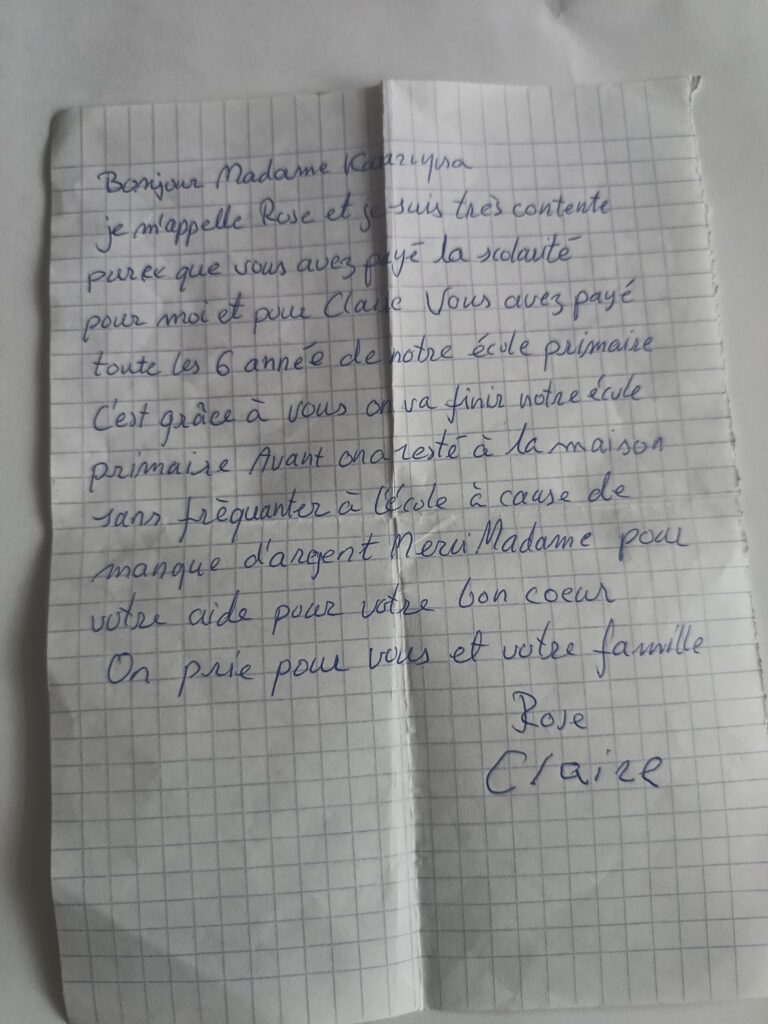 Bonjour Madame
je m'appelle Rose et je suis très contente
parec que vous avez payé la scolarité
pour moi et pour Claire Vous avez payé
toute les 6 année de notre école primaire
C'est grâce à vous on va finir notre école
primaire Avant on a resté à la maison
sans fréquanter à l'école à cause de
manque d'argent Merci Madame pour
votre aide pour votre bon coeur
On prie pour vous et votre famille
Rose
Claire